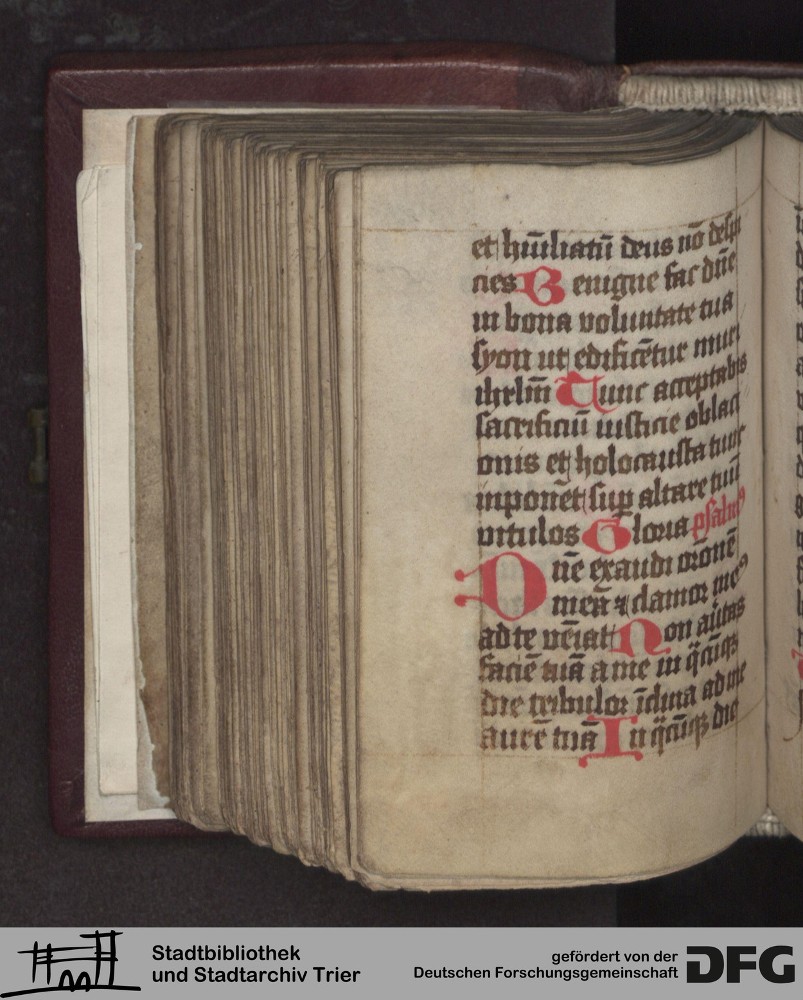 et hūiliatū deus nō despi
cies Benigne fac dn̄e
in bona voluntate tua
syon ut edificētur muri
ihrlm̄ Tunc acceptabis
sacrificiū iusticie oblaci
onis et holocausta tunc
inponēt sup altare tuū
vitulos Gloria psalmꝰ
Dn̄e exaudi oro̅nē
meā ⁊ clamor meꝰ
ad te vēiat Non au̅tas
faciē tuā a me in q̄cūqꝫ
die tribulor īclina ad me
aurē tuā In q̄cūqꝫ die
Stadtbibliothek
und Stadtarchiv Trier
gefördert von der
Deutschen Forschungsgemeinschaft
DFG